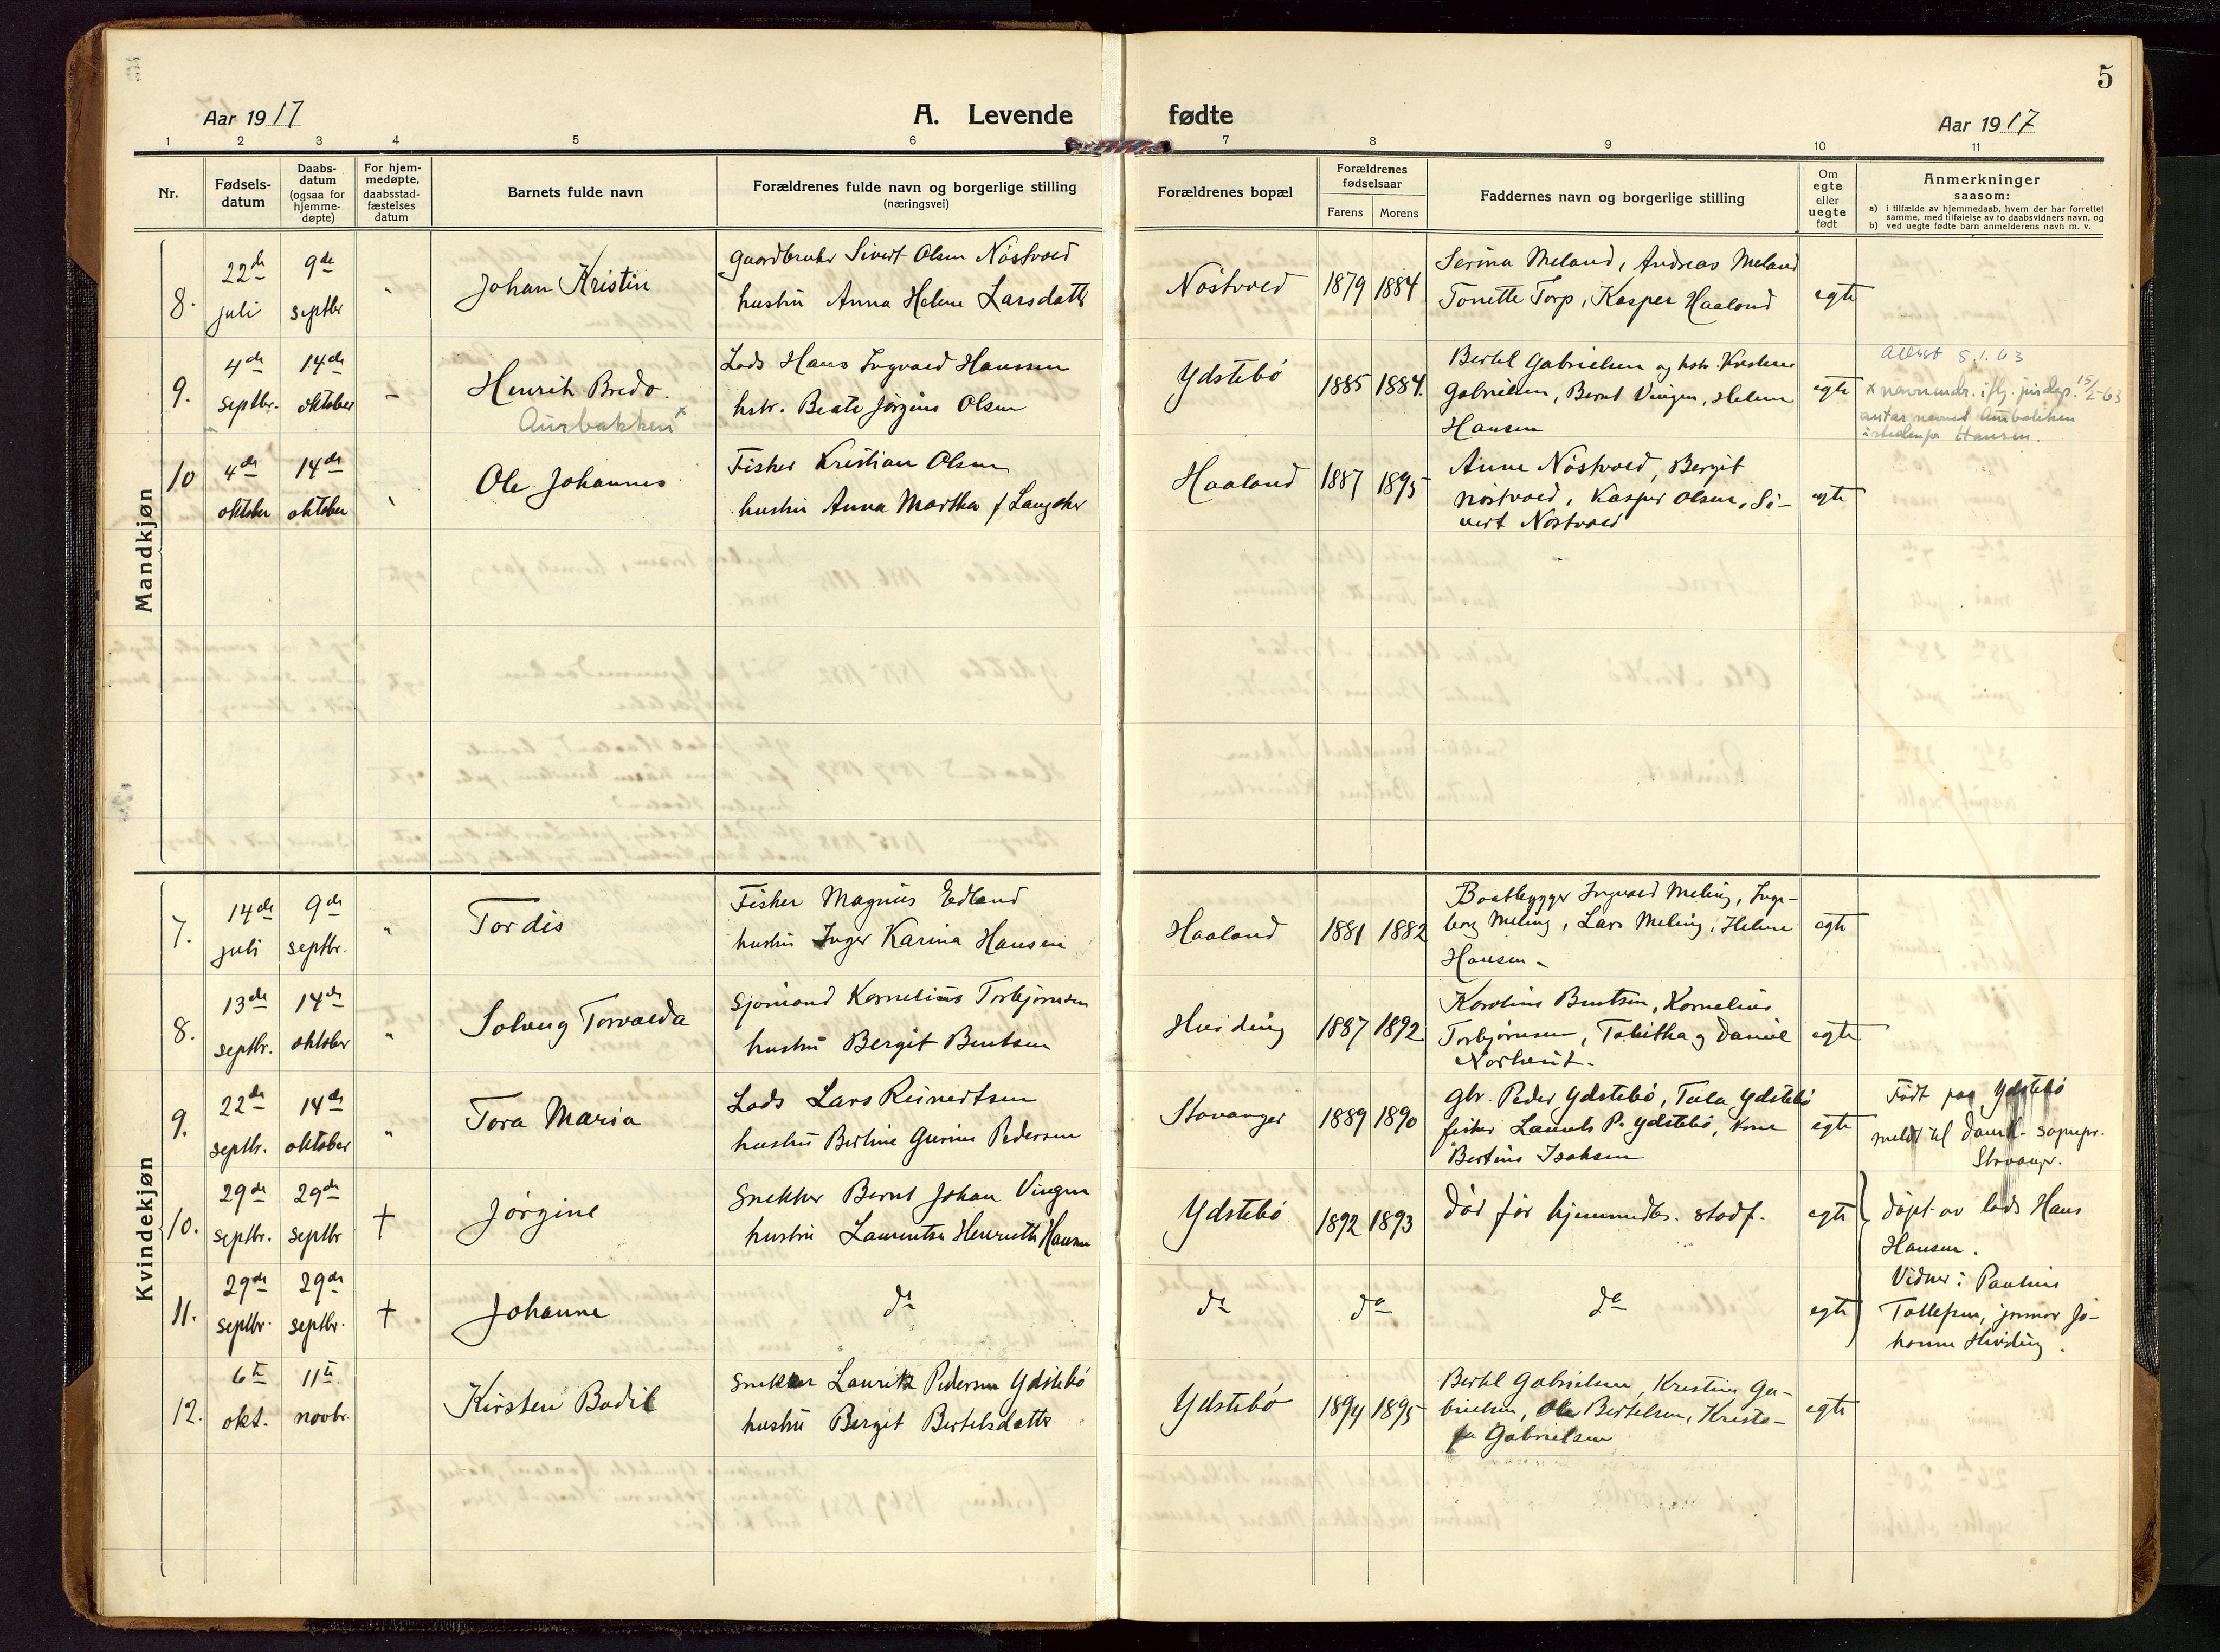 5
Aar 1917
A. Levende
fødte
Aar 1917
1 2 3 4 5 6 7 8 9 10 11
Nr.
Fødsels-
datum
Daabs-
datum
(ogsaa for
hjemme-
døpte)
For hjem-
medøpte,
daabsstad-
fæstelses
datum
Barnets fulde navn
Forældrenes fulde navn og borgerlige stilling
(næringsvei)
Forældrenes bopæl
Forældrenes
fødselsaar
Farens
Morens
Faddernes navn og borgerlige stilling
Om
egte
eller
uegte
født
Anmerkninger
saasom:
a) i tilfælde av hjemmedaab, hvem der har forrettet
samme, med tilføielse av to daabsvidners navn, og
b) ved uegte fødte barn anmelderens navn m. v.
Mandkjøn
8.
22de
juli
9de
septbr
"
Johan Kristin
Gaardbruker Sivert Olsen Nöstvold
hustru Anna Helene Larsdatter
Nöstvold
1879
1884
Serina Meland, Andreas Meland
Tonette Torp, Kasper Haaland
egte
9.
4de
septbr.
14de
oktober
-
Henrik Bredo.
Aurbakken x
Lods Hans Ingvald Hanssen
hstr. Beate Jörgine Olsen
Ydstebö
1885
1884.
Bertel Gabrielsen og hstr. Kristine
Gabrielsen, Bernt Vingen, Helene
Hansen
egte
Attest 5.1.63
x navnendr. iflg. jusdep. 15/2-63
antar navnet Aurbakken
istedenfor Hansen.
10
4de
oktober
14de
oktober
Ole Johannes
Fisker Kristian Olsen
hustru Anna Martha f Langåker
Haaland
1887
1895
Anne Nöstvold, Bergit
Nöstvold, Kasper Olsen, Si-
vert Nöstvold
egte
Kvindekjøn
7.
14de
juli
9de
septbr.
"
Tordis
Fisker Magnus Edland
hustru Inger Karina Hansen
Haaland
1881
1882
Baatbygger Ingvald Meling, Inge-
borg Meling, Lars Meling, Helene
Hansen -
egte
8.
13de
septbr.
14de
oktober
"
Solveig Torvalda
Sjömand Kornelius Torbjörnsen
hustru Bergit Bentsen
Hviding
1887
1892
Karoline Bentsen, Kornelius
Torbjörnsen, Tabitha og Daniel
egte
9.
22de
septbr.
14de
oktober
"
Tora Maria
Lods Lars Reinertsen
hustru Bertine Gurine Pedersen
Stavanger
1889
1890
Gbr. Peder Ydstebö, Tala Ydstebö
fisker Laurits P. Ydstebö, kone
Bertine Isaksen
egte
Födt paa Ydstebö
meldt til domk. sognepr.
Stavanger.
10.
29de
septbr.
29de
septbr
†
Jörgine
Snekker Bernt Johan Vingen
hustru Laurentse Henriette Hansen
Ydstebö
1892
1893
Död för hjemmedbs. stadf.
egte
Döpt av lods Hans
Hansen.
Vidner: Pauline
Tollefsen, jormor Jo-
hanne Hviding.
11.
29de
septbr.
29de
septbr.
†
Johanne
do
do
do
do
egte
12.
6te
okt.
11te
novbr.
Kirsten Bodil
Snekker Lauritz Pedersen Ydstebö
hustru Bergit Bertelsdatter
Ydstebö
1894
1895
Bertel Gabrielsen, Kristine Ga-
brielsen, Ole Bertelsen, Kristo-
fa Gabrielsen
egte